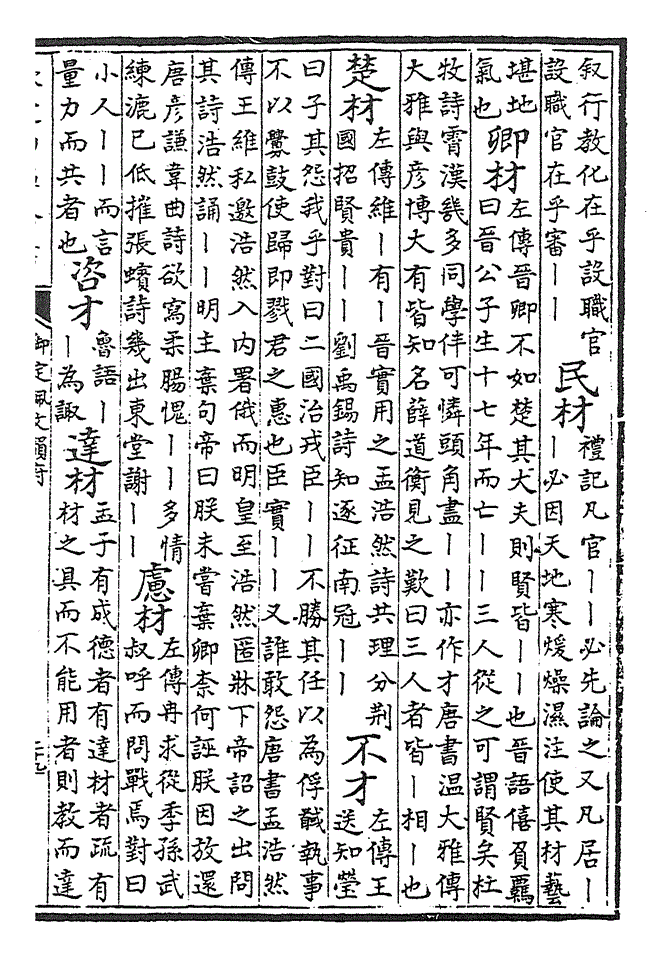 叙行教化在乎設職官
設職官在乎審丨丨
民材
禮記凡官丨丨必先論之又凡居丨
丨必因天地寒煖燥濕注使其材藝
堪地
氣也
卿材
左傳晉卿不如楚其大夫則賢皆丨丨也晉語僖負羈
曰晉公子生十七年而亡丨丨三人從之可謂賢矣杜
牧詩霄漢幾多同學伴可憐頭角盡丨丨亦作才唐書温大雅傳
大雅與彦博大有皆知名薛道衡見之歎曰三人者皆丨相丨也
楚材
左傳維丨有丨晉實用之孟浩然詩共理分荆
國招賢貴丨丨劉禹錫詩知逐征南冠丨丨
不才
左傳王
送知罃
曰子其怨我乎對曰二國治戎臣丨丨不勝其任以為俘馘執事
不以釁鼓使歸即戮君之惠也臣實丨丨又誰敢怨唐書孟浩然
傳王維私邀浩然入内署俄而明皇至浩然匿牀下帝詔之出問
其詩浩然誦丨丨明主棄句帝曰朕未嘗棄卿奈何誣朕因放還
唐彦謙韋曲詩欲寫柔腸愧丨丨多情
練漉已低摧張蠙詩幾出東堂謝丨丨
慮材
左傳冉求從季孫武
叔呼而問戰焉對曰
小人丨丨而言
量力而共者也
咨才
魯語丨
丨為諏
達材
孟子有成德者有達材者疏有
材之具而不能用者則教而達
御定佩文韻府